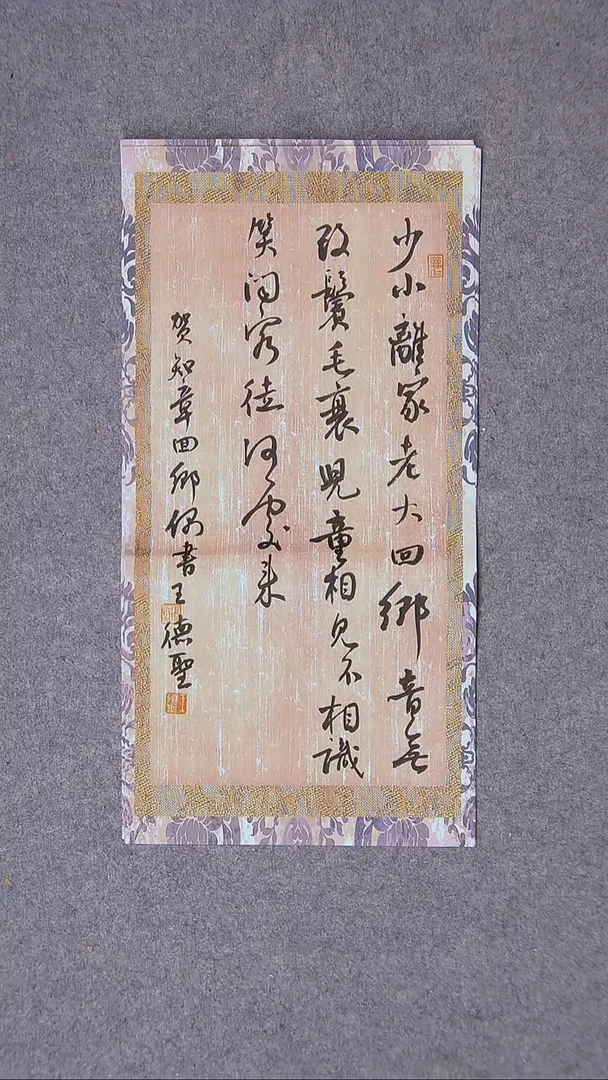 少小離家老大回鄉音無
改鬢毛衰児童相見不相識
笑问客従何處来
贺知章回鄉偶書王德聖